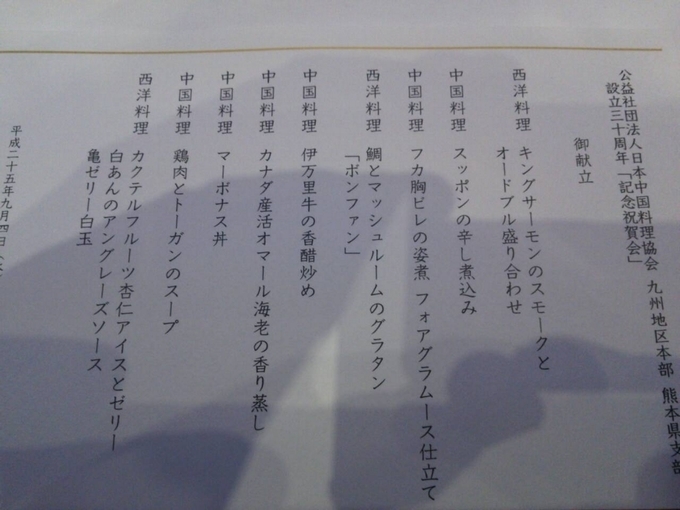 公益社団法人日本中国料理協会 九州地区本部 熊本県支部
設立三十周年「記念祝賀会」
御献立
西洋料理 キングサーモンのスモークと
オードブル盛り合わせ
中国料理 スッポンの辛し煮込み
中国料理 フカ胸ビレの姿煮 フォアグラムース仕立て
西洋料理 鯛とマッシュルームのグラタン
「ボンファン」
中国料理 伊万里牛の香醋炒め
中国料理 カナダ産活オマール海老の香り蒸し
中国料理 マーボナス丼
中国料理 鶏肉とトーガンのスープ
西洋料理 カクテルフルーツ杏仁アイスとゼリー
白あんのアングレーズソース
亀ゼリー白玉
平成二十五年九月四日